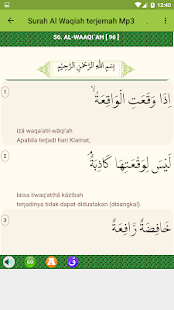 12:40
Surah Al Waqiah terjemah Mp3
56. AL-WAAQI'AH [ 96 ]
بِسْمِ اللَّهِ الرَّحْمَٰنِ الرَّحِيمِ
1
إِذَا وَقَعَتِ الْوَاقِعَةُ ۙ
iżā waqa'atil-wāqi'ah
Apabila terjadi hari Kiamat,
2
لَيْسَ لِوَقْعَتِهَا كَاذِبَةٌ ۘ
laisa liwaq'atihā kāżibah
terjadinya tidak dapat didustakan (disangkal).
3
خَافِضَةٌ رَّافِعَةٌ